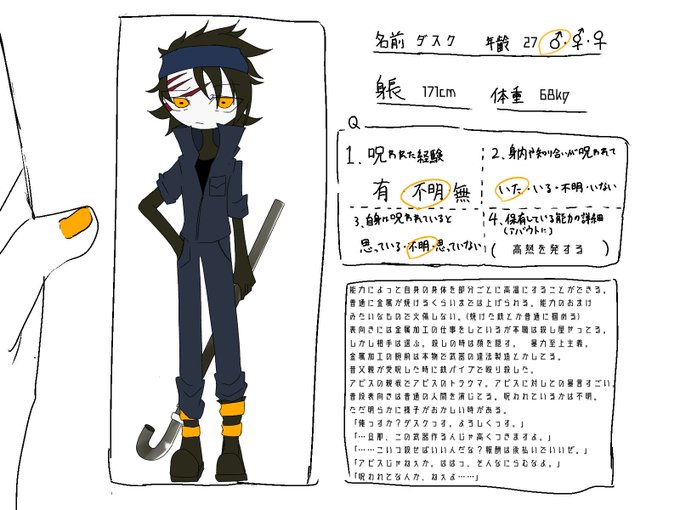 名前 ダスク 年齢 27 ♂・⚥・♀
身長 171cm 体重 68kg
Q
1、呪われた経験
有 不明 無
2、身内や知り合いが呪われて
いた・いる・不明・いない
3、自身は呪われていると
思っている・不明・思っていない
4、保有している能力の詳細
(アバウトに)
( 高熱を発する )
能力によって自身の身体を部分ごとに高温にすることができる。
普通に金属が焼けるくらいまでは上げられる。能力のおまけ
みたいなもので火傷しない。(焼けた鉄とか普通に掴める)
表向きには金属加工の仕事をしているが本職は殺し屋やってる。
しかし相手は選ぶ。殺しの時は顔を隠す。 暴力至上主義。
金属加工の腕前は本物で武器の違法製造とかしてる。
昔父親が発呪した時に鉄パイプで殴り殺した。
アビスの親戚でアビスのトラウマ。アビスに対しての暴言すごい。
普段表向きは普通の人間を演じてる。呪われているかは不明。
ただ明らかに様子がおかしい時がある。
「俺っすか?ダスクっす。よろしくっす。」
「…旦那、この武器作るんじゃ高くつきますよ。」
「……こいつ殺せばいいんだな?報酬は後払いでいいぜ。」
「アビスじゃねぇか。ははっ、そんなにらむなよ。」
「呪われてなんか、ねぇよ……」